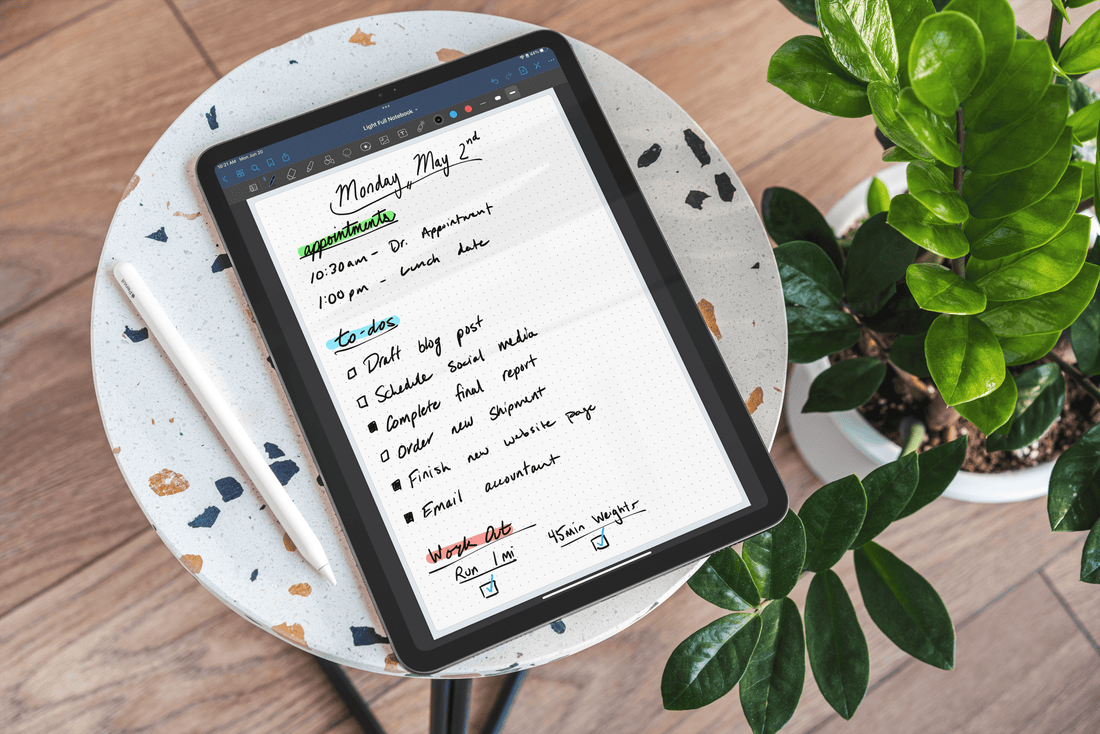 10:21 AM Mon Jun 20
44%
Light Full Notebook
Monday, May 2nd
appointments
10:30 am - Dr. Appointment
1:00 pm - Lunch date
to-dos
Draft blog post
Schedule social media
Complete final report
Order new shipment
Finish new website page
Email accountant
Work Out
Run 1 mi
45 min Weights
Pencil